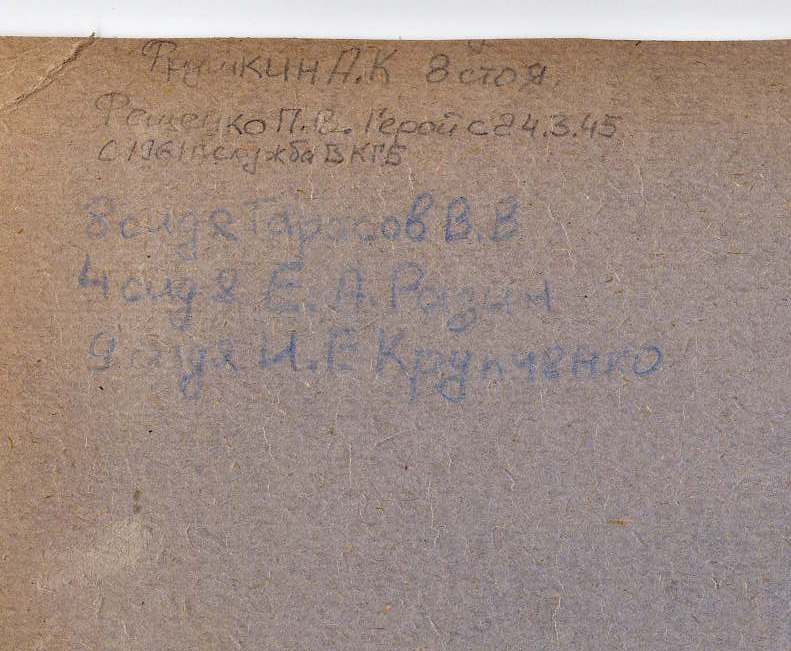 А.К 8 стоя,
Фещенко П.В. Герой с 24.3.45
С 1961г служба В КГБ
8 сидя Тарасов В.В
4 сидя Е.А. Разин
9 сидя И.Е Крупченко